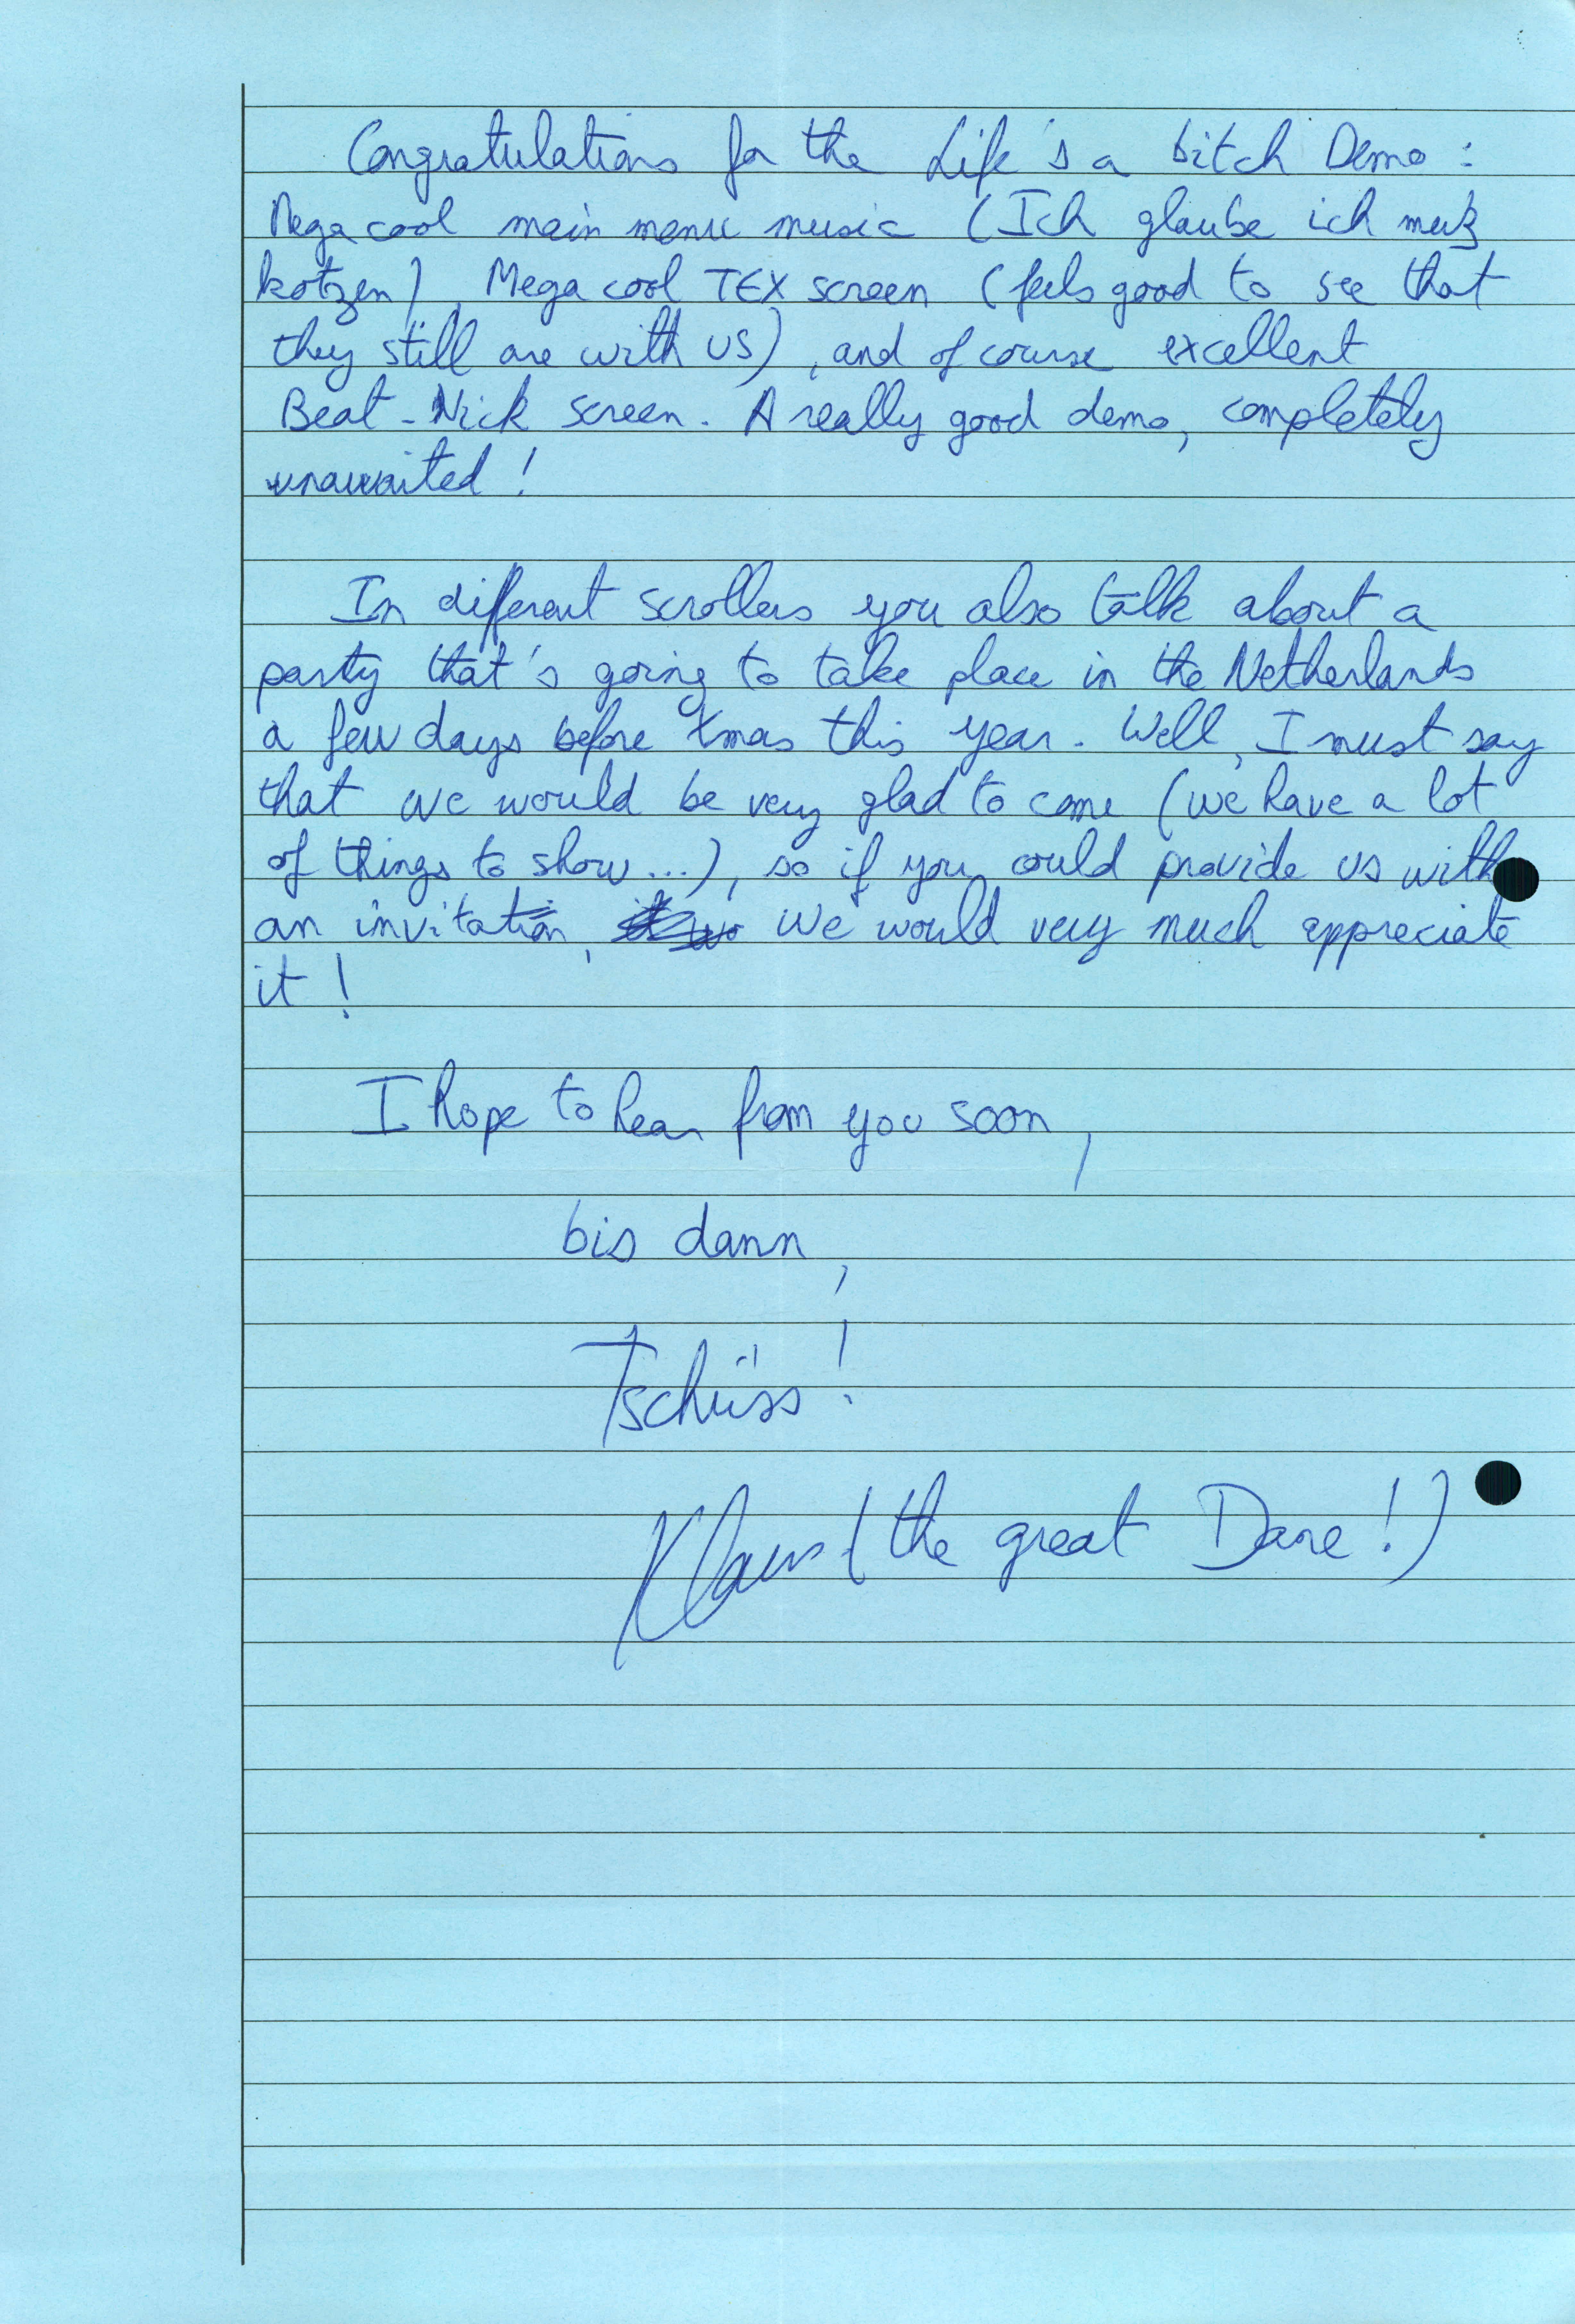 Congratulations for the Life's a bitch Demo :
Mega cool main menu music (Ich glaube ich muß
kotzen), Mega cool TEX screen (feels good to see that
they still are with US), and of course excellent
Beat-Nick screen. A really good demo, completely
unawaited !
In different scrollers you also talk about a
party that's going to take place in the Netherlands
a few days before Xmas this year. Well, I must say
that we would be very glad to come (we have a lot
of things to show...), so if you could provide us with
an invitation, We would very much appreciate
it !
I hope to hear from you soon,
bis dann,
Tschüss !
Klaus (the great Dane!)